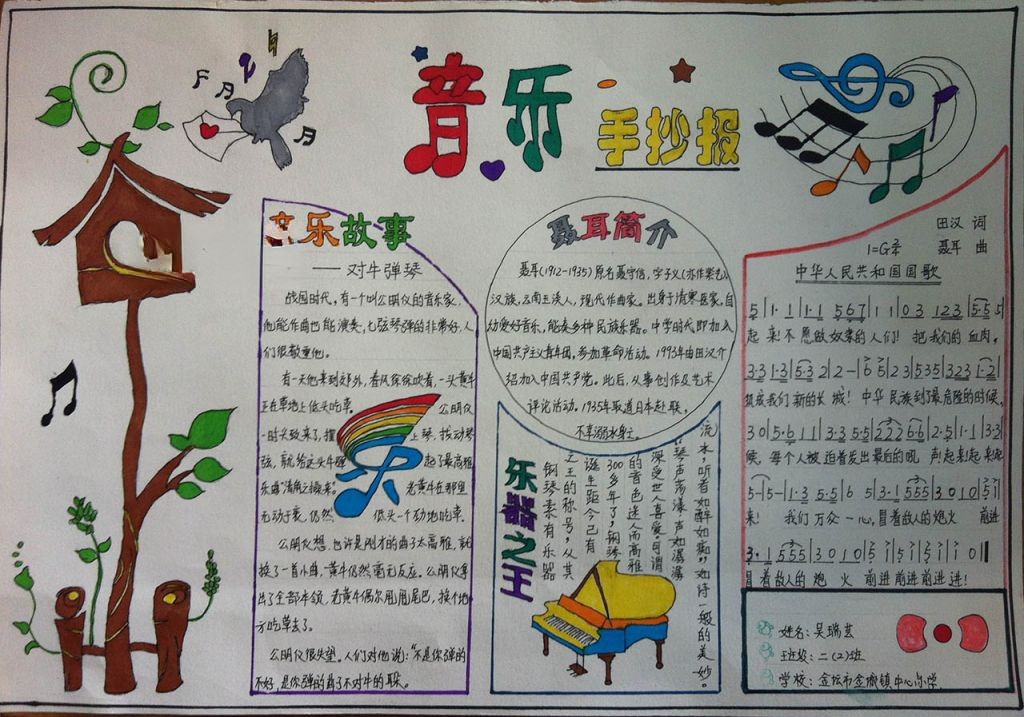 音乐
手抄报
音乐故事
——对牛弹琴
战国时代，有一个叫公明仪的音乐家，
他能作曲也能演奏，七弦琴弹的非常好，人
们很敬重他。
有一天他来到郊外，春风徐徐吹着，一头黄牛
正在草地上低头吃草。 公明仪
一时兴致来了，摆 上琴，拨动琴
弦，就给这头牛弹 起了最高雅
乐曲“清角之操来”。 老黄牛在那里
无动于衷，仍然 低头一个劲地吃草。
公明仪想，也许是刚才的曲子太高雅，就
换了一首小曲，黄牛仍然毫无反应。公明仪拿
出了全部本领，老黄牛偶尔甩甩尾巴，换个地
方吃草去了。
公明仪很失望。人们对他说：“不是你弹的
不好，是你弹的曲子不对牛的耳朵。
聂耳简介
聂耳(1912-1935)原名聂守信，字子义(亦作紫艺)
汉族，云南玉溪人，现代作曲家。出身于清寒医家，自
幼爱好音乐，能奏多种民族乐器。中学时代即加入
中国共产主义青年团，参加革命活动。1993年由田汉介
绍加入中国共产党。此后，从事创作及艺术
评论活动。1935年取道日本赴联，
不幸溺水身亡。
乐器之王
钢琴素有乐器
之王的称号，从其
诞生距今已有
300多年了，钢琴
的音色迷人而高雅
深受世人喜爱，可谓
“琴声荡漾，声如潺潺
流水，听着如醉如痴”，如诗一般的美妙。
田汉 词
1=G 聂耳 曲
中华人民共和国国歌
5|1·1|1·1 567|1 1|03 123|55 5|
起来！不愿做奴隶的人们！把我们的血肉，
3·3 1·3|5·3 2|2-|6 5|2 3|535|323 1·2|
筑成我们新的长城！中华民族到了最危险的时候，
30|5·6 11|3·3 5·5|222 66|2·5|1·1|3·3
候，每个人被迫着发出最后的吼声！起来！起来！起
5-|5-|1·3 5·5|6 5|3·1 555|3010|5 1|
来！ 我们万众一心，冒着敌人的炮火 前进
3·1 555|3010|5 1|5 1|5 1|1 0‖
冒着敌人的炮火 前进前进前进进！
姓名：吴瑞芸
班级：二(2)班
学校：金坛市金城镇中心小学